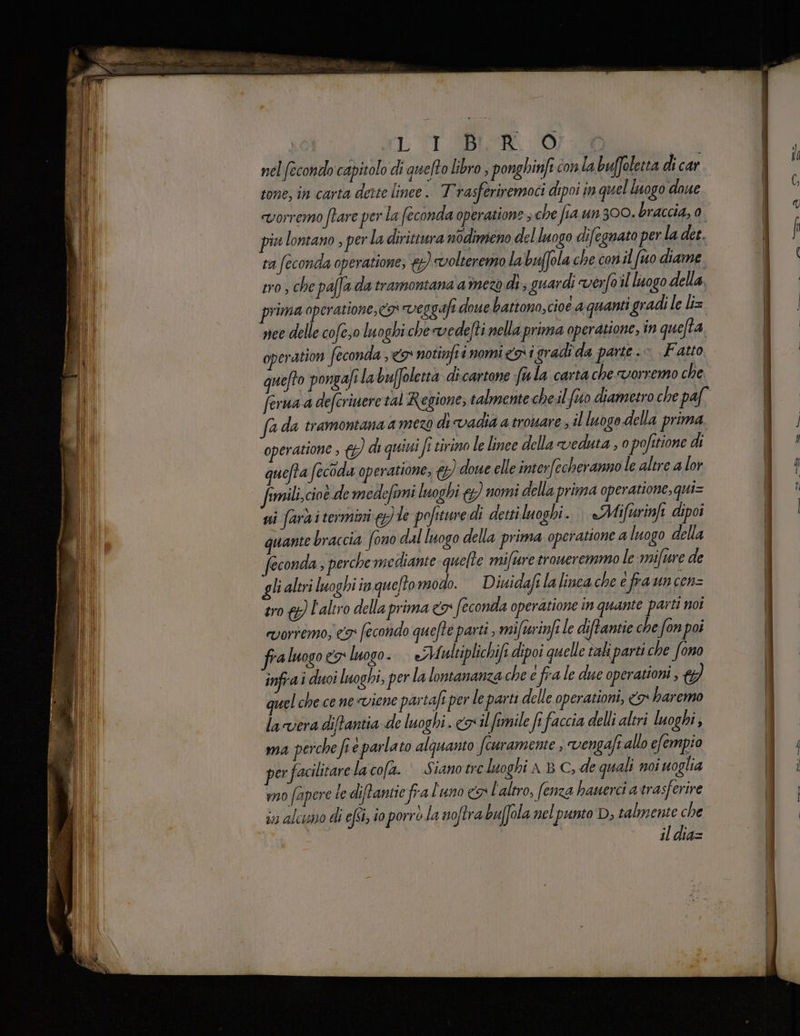 L I B R O
nel ſecondo capitolo di queſto libro, ponghinſi con la buſſoletta di car
tone, in carta dette linee. Traſferiremoci dipoi in quel luogo doue
vorremo ſtare per la ſeconda operatione, che ſia un 300. braccia, o
piu lontano, per la dirittura nōdimeno del luogo diſegnato per la det
ta ſeconda operatione, & volteremo la buſſola che con il ſuo diame
tro, che paſſa da tramontana a mezo di, guardi verſo il luogo della
prima operatione, & veggaſi doue battono, cioè a quanti gradi le li=
nee delle coſe, o luoghi che vedeſti nella prima operatione, in queſta
operation ſeconda, & notinſi i nomi & i gradi da parte. Fatto
queſto pongaſi la buſſoletta di cartone ſu la carta che vorremo che
ſerua a deſcriuere tal Regione, talmente che il ſuo diametro che paſ
ſa da tramontana a mezo di vadia a trouare, il luogo della prima
operatione, & di quiui ſi tirino le linee della veduta, o poſitione di
queſta ſecōda operatione, & doue elle interſecheranno le altre a lor
ſimili, cioè de medeſimi luoghi & nomi della prima operatione, qui=
ui ſarai termini & le poſiture di detti luoghi. Miſurinſi dipoi
quante braccia ſono dal luogo della prima operatione a luogo della
ſeconda, perche mediante queſte miſure troueremmo le miſure de
gli altri luoghi in queſto modo. Diuidaſi la linea che è fra un cen=
tro & l'altro della prima & ſeconda operatione in quante parti noi
vorremo, & ſecondo queſte parti, miſurinſi le diſtantie che ſon poi
fra luogo & luogo. Multiplichiſi dipoi quelle tali parti che ſono
infra i duoi luoghi, per la lontananza che è fra le due operationi, &
quel che ce ne viene partaſi per le parti delle operationi, & haremo
la vera diſtantia de luoghi. & il ſimile ſi faccia delli altri luoghi,
ma perche ſi è parlato alquanto ſcuramente, vengaſi allo eſempio
per facilitare la coſa. Siano tre luoghi A B C, de quali noi uoglia
mo ſapere le diſtantie fra l'uno & l'altro, ſenza hauerci a traſferire
in alcuno di eſsi, io porrò la noſtra buſſola nel punto D, talmente che
il dia=